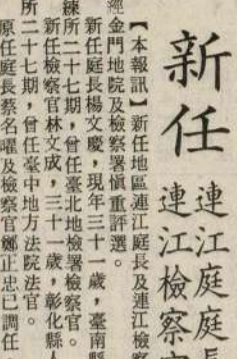 新任
連江庭庭長
連江檢察官
【本報訊】新任地區連江庭長及連江檢察
經金門地院及檢察署慎重評選。
新任庭長楊文慶，現年三十一歲，臺南縣
練所二十七期，曾任臺北地檢署檢察官。
新任檢察官林文成，三十一歲，彰化縣人
所二十七期，曾任臺中地方法院法官。
原任庭長蔡名曜及檢察官鄭正忠已調任